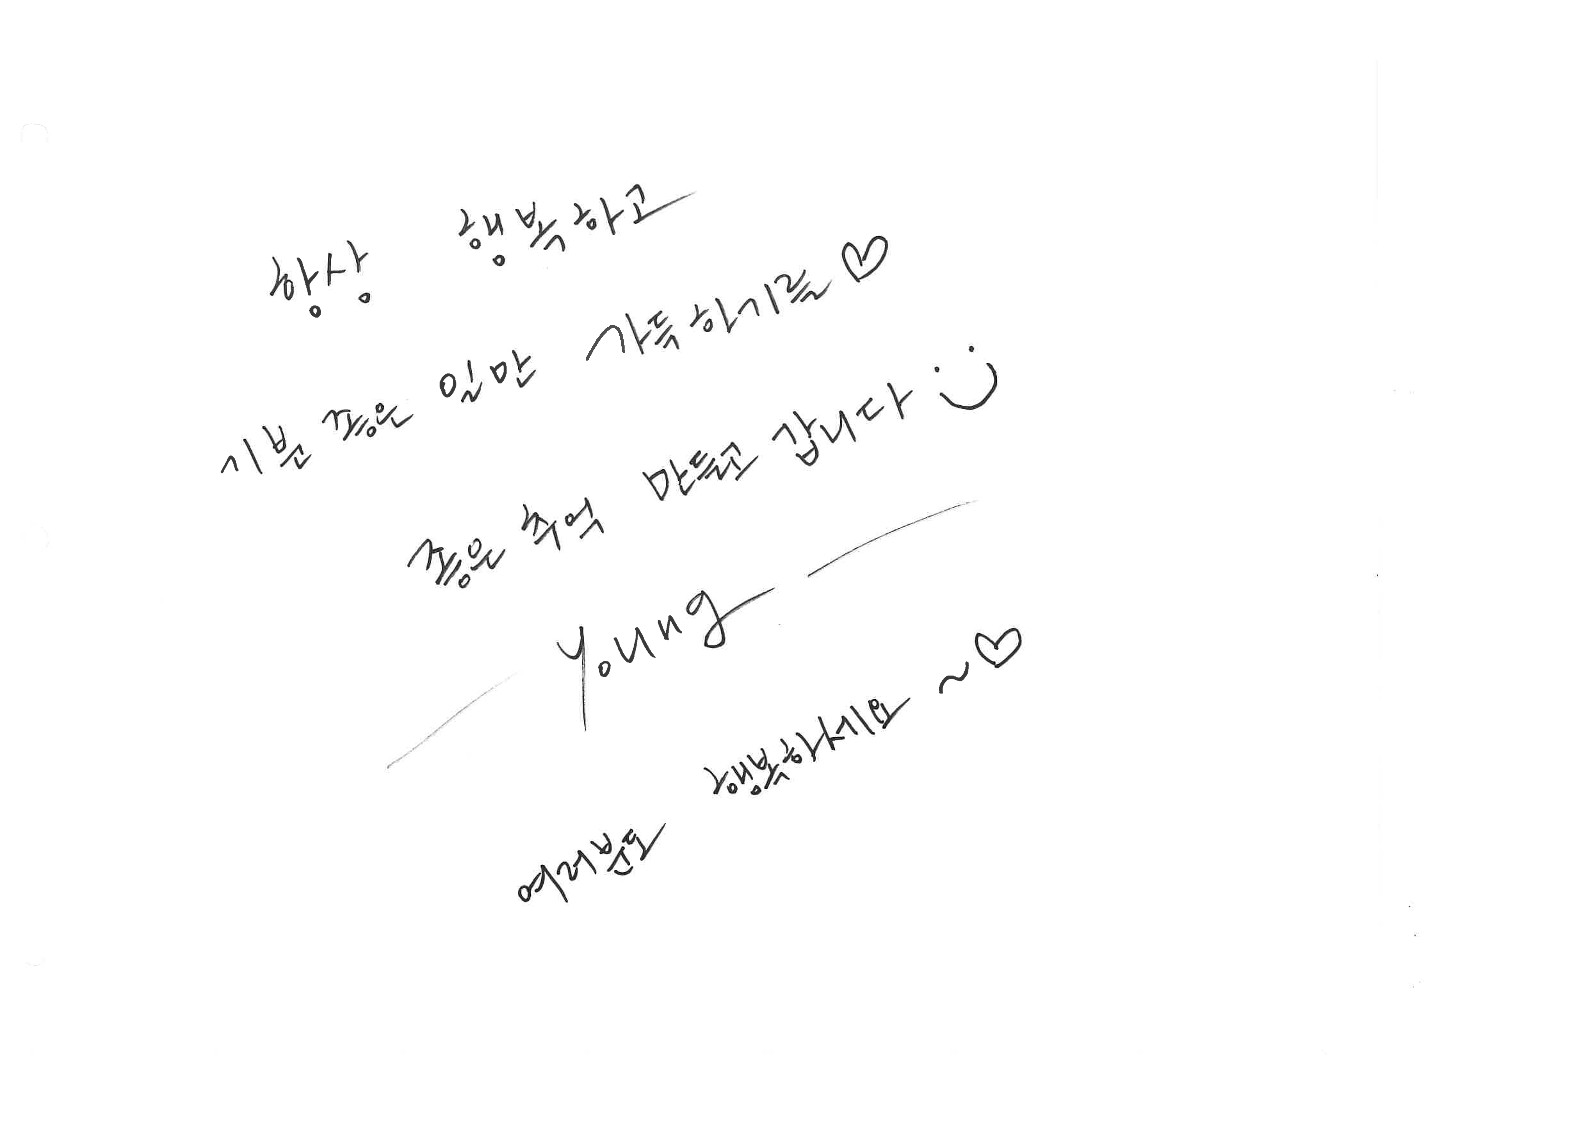 항상 행복하고
기분 좋은 일만 가득하기를♡
좋은 추억 만들고 갑니다
Young
여러분도 행복하세요~♡